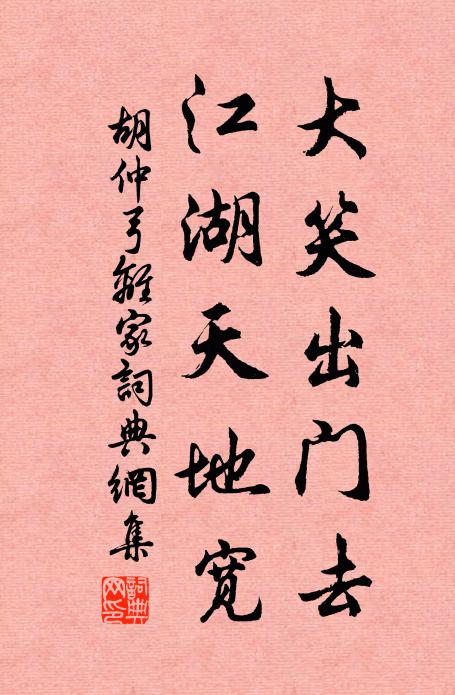 大笑出门去
江湖天地宽
胡仲弓離家詞典網集
詞典
网印